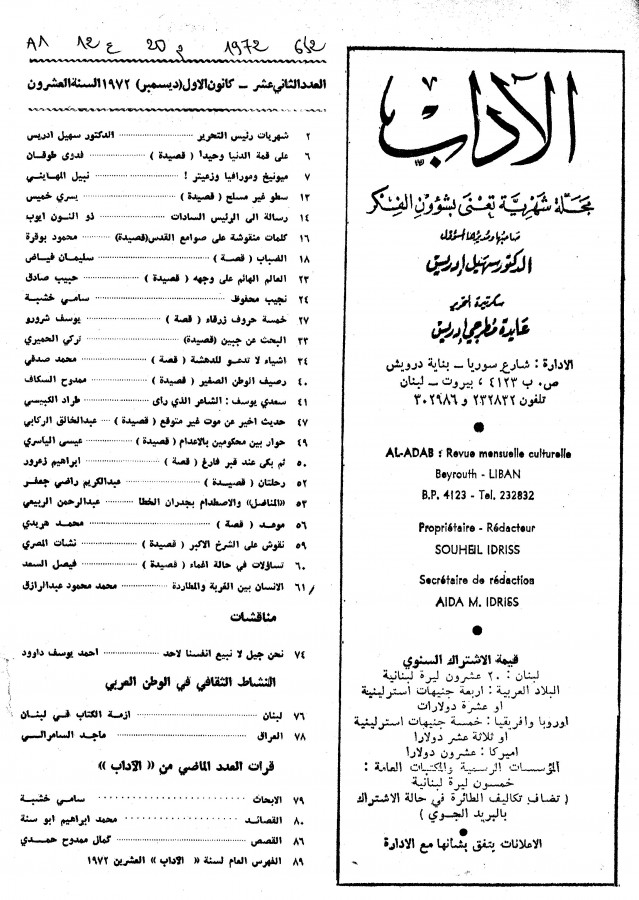 A1 12 ع 20 م 1972
الآداب
مجلة شهرية تعنى بشؤون الفكر
صاحبها ومديرها المسؤول
الدكتور سهيل ادريس
سكرتيرة التحرير
عايدة مطرجي ادريس
الادارة : شارع سوريا ــ بناية درويش
ص. ب ٤١٢٣ ، بيروت ــ لبنان
تلفون ٢٣٢٨٣٢ و ٣٠٢٩٨٦
AL-ADAB : Revue mensuelle culturelle
Beyrouth - LIBAN
B.P. 4123 - Tel. 232832
Propriétaire - Rédacteur
SOUHEIL IDRISS
Secrétaire de rédaction
AIDA M. IDRIES
قيمة الاشتراك السنوي
لبنان : ٢٠ عشرون ليرة لبنانية
البلاد العربية : اربعة جنيهات استرلينية
او عشرة دولارات
اوروبا وافريقيا : خمسة جنيهات استرلينية
او ثلاثة عشر دولارا
اميركا : عشرون دولارا
المؤسسات الرسمية والمكتبات العامة :
خمسون ليرة لبنانية
( تضاف تكاليف الطائرة في حالة الاشتراك
بالبريد الجوي )
الاعلانات يتفق بشأنها مع الادارة
العدد الثاني عشر ــ كانون الاول (ديسمبر) ١٩٧٢ السنة العشرون
٢ شهريات رئيس التحرير الدكتور سهيل ادريس
٦ على قمة الدنيا وحيدا ( قصيدة ) فدوى طوقان
٧ ميونيخ ومورافيا وزعيتر ! نبيل المهايني
١٣ سطو غير مسلح ( قصيدة ) يسري خميس
١٤ رسالة الى الرئيس السادات ذو النون ايوب
١٦ كلمات منقوشة على صوامع القدس (قصيدة) محمود بوقرة
١٨ الضباب ( قصة ) سليمان فياض
٢٣ العالم الهائم على وجهه ( قصيدة ) حبيب صادق
٢٤ نجيب محفوظ سامي خشبة
٢٧ خمسة حروف زرقاء ( قصة ) يوسف شرورو
٣٣ البحث عن جبين (قصيدة) تركي الحميري
٣٤ اشياء لا تدعو للدهشة ( قصة ) محمد صدقي
٤٠ رصيف الوطن الصغير ( قصيدة ) ممدوح السكاف
٤١ سعدي يوسف : الشاعر الذي راى طراد الكبيسي
٤٧ حديث اخير عن موت غير متوقع ( قصيدة ) عبدالخالق الركابي
٤٩ حوار بين محكومين بالاعدام ( قصيدة ) عيسى الياسري
٥٠ ثم بكى عند قبر فارغ ( قصة ) ابراهيم زعرور
٥٢ رحلتان ( قصيدة ) عبدالكريم راضي جعفر
٥٣ «المناضل» والاصطدام بجدران الخطا عبدالرحمن الربيعي
٥٦ موعد ( قصة ) محمد هريدي
٥٩ نقوش على الشرخ الاكبر ( قصيدة ) نشات المصري
٦٠ تساؤلات في حالة اغماء ( قصيدة ) فيصل السعد
٦١ الانسان بين الغربة والمطاردة محمد محمود عبدالرازق
مناقشات
٧٤ نحن جيل لا نبيع انفسنا لاحد احمد يوسف داوود
النشاط الثقافي في الوطن العربي
٧٦ لبنان ازمة الكتاب في لبنان
٧٨ العراق ماجد السامرائي
قرات العدد الماضي من « الآداب »
٧٩ الابحاث سامي خشبة
٨٠ القصائد محمد ابراهيم ابو سنة
٨٦ القصص كمال ممدوح حمدي
٨٩ الفهرس العام لسنة « الآداب » العشرين ١٩٧٢